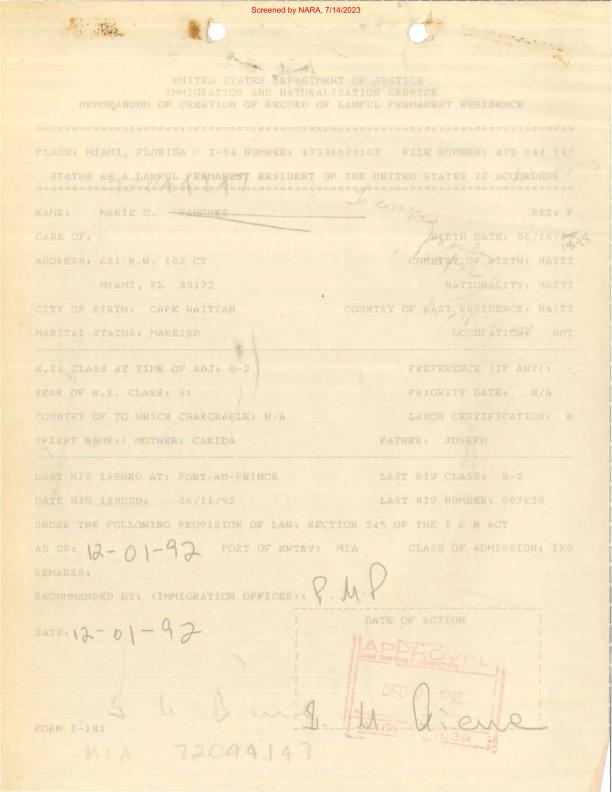 Screened by NARA, 7/14/2023
UNITED STATES DEPARTMENT OF JUSTICE
IMMIGRATION AND NATURALIZATION SERVICE
MEMORANDUM OF CREATION OF RECORD OF LAWFUL PERMANENT RESIDENCE
PLACE: MIAMI, FLORIDA I-94 NUMBER: 17336021102 FILE NUMBER: A72 044 147
STATUS AS A LAWFUL PERMANENT RESIDENT OF THE UNITED STATES IS ACCORDED:
NAME: MARIE C. VAUGUES SEX: F
CARE OF: BIRTH DATE: 06/16/
1898
ADDRESS: 681 N.W. 102 CT COUNTRY OF BIRTH: HAITI
MIAMI, FL 33172 NATIONALITY: HAITI
CITY OF BIRTH: CAPE HAITIAN COUNTRY OF LAST RESIDENCE: HAITI
MARITAL STATUS: MARRIED OCCUPATION: NOT
N.I. CLASS AT TIME OF ADJ: B-2 PREFERENCE (IF ANY): -
YEAR OF N.I. CLASS: 91 PRIORITY DATE: N/A
COUNTRY OF TO WHICH CHARGRABLE: N/A LABOR CERTIFICATION: N
(FIRST NAME:) MOTHER: CARIDA FATHER: JOSEPH
LAST NIV ISSUED AT: PORT-AU-PRINCE LAST NIV CLASS: B-2
DATE NIV ISSUED: 06/11/92 LAST NIV NUMBER: 007639
UNDER THE FOLLOWING PROVISION OF LAW: SECTION 245 OF THE I & N ACT
AS OF: 12-01-92 PORT OF ENTRY: MIA CLASS OF ADMISSION: IR0
REMARKS:
RECOMMENDED BY: (IMMIGRATION OFFICER): P.M.P
DATE OF ACTION
DATE: 12-01-92
APPROVAL
DEC 1992
FORM I-181
MIA 72044147